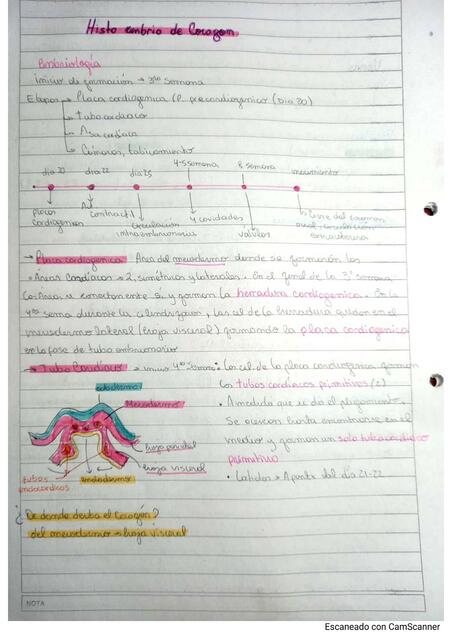 Histo embrio de Corazon
Embriología
inicio de formación → 3ra semana
Etapas → Placa cardiogenica (P. precardiogenica (Dia 20)
→ tubo cardiaco
→ Asa cardiaca
→ Camaras, tabicamiento
dia 20 dia 22 dia 25 4-5 semana 8 semana nacimiento
placa cardiogenica
contractil
circulación intraembrionaria
4 cavidades
valvulas
Cierre del foramen oval, circulación
→ Placa cardiogenica: Area del mesodermo donde se formarán los
• Áreas cardiacas → 2, simétricas y laterales. En el final de la 3° semana
las areas se conectan entre sí y forman la herradura cardiogenica. En la
4ta sema durante la cilindrizacion, las cel de la herradura quedan en el
mesodermo lateral (hoja visceral) formando la placa cardiogenica
en la fase de tubo embrionario
→ Tubo Cardiaco → inicio 4ta semana • Las cel de la placa cardiogenica forman
los tubos cardiacos primitivos (2)
• A medida que se da el plegamiento
se acercan hasta encontrarse en el
medio y forman un solo tubo cardiaco
primitivo
• Latidos → A partir del dia 21-22
ectodermo
Mesodermo
hoja parietal
hoja visceral
tubos endocardicos
endodermo
¿De donde deriba el Corazón?
del mesodermo → hoja visceral
NOTA
Escaneado con CamScanner